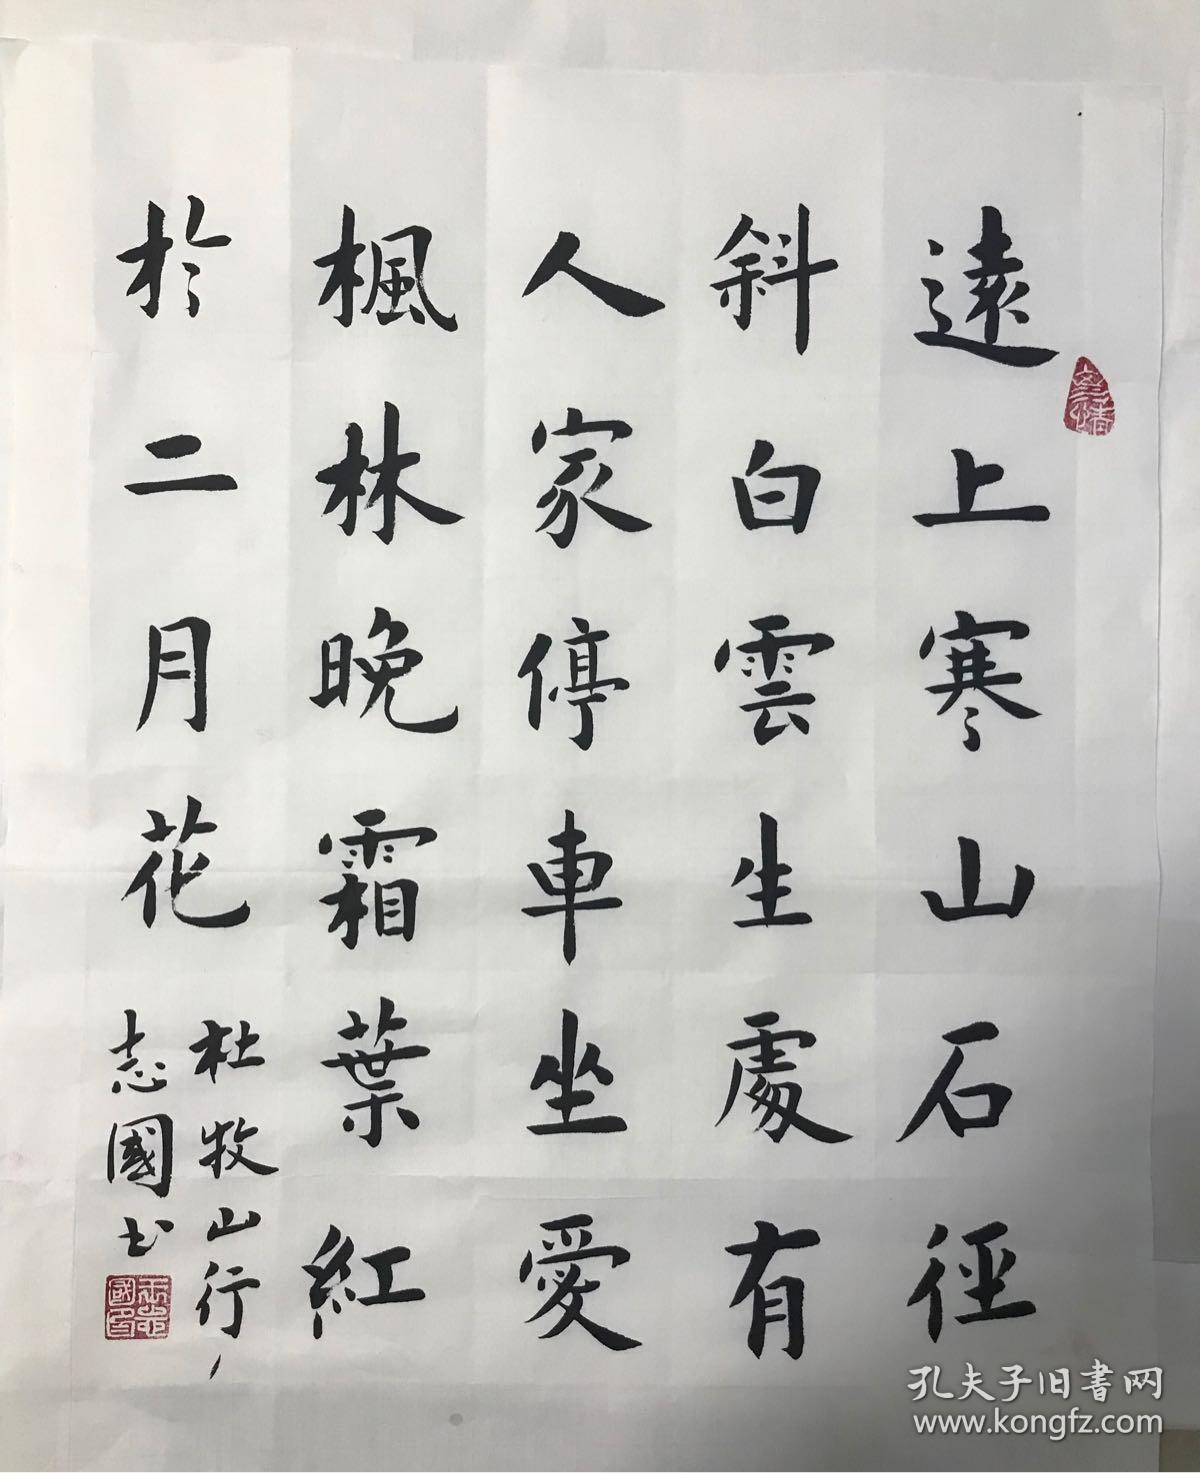 遠上寒山石徑
斜白雲生處有
人家停車坐愛
楓林晚霜葉紅
於二月花
杜牧山行
志國书
孔夫子旧書网
www.kongfz.com